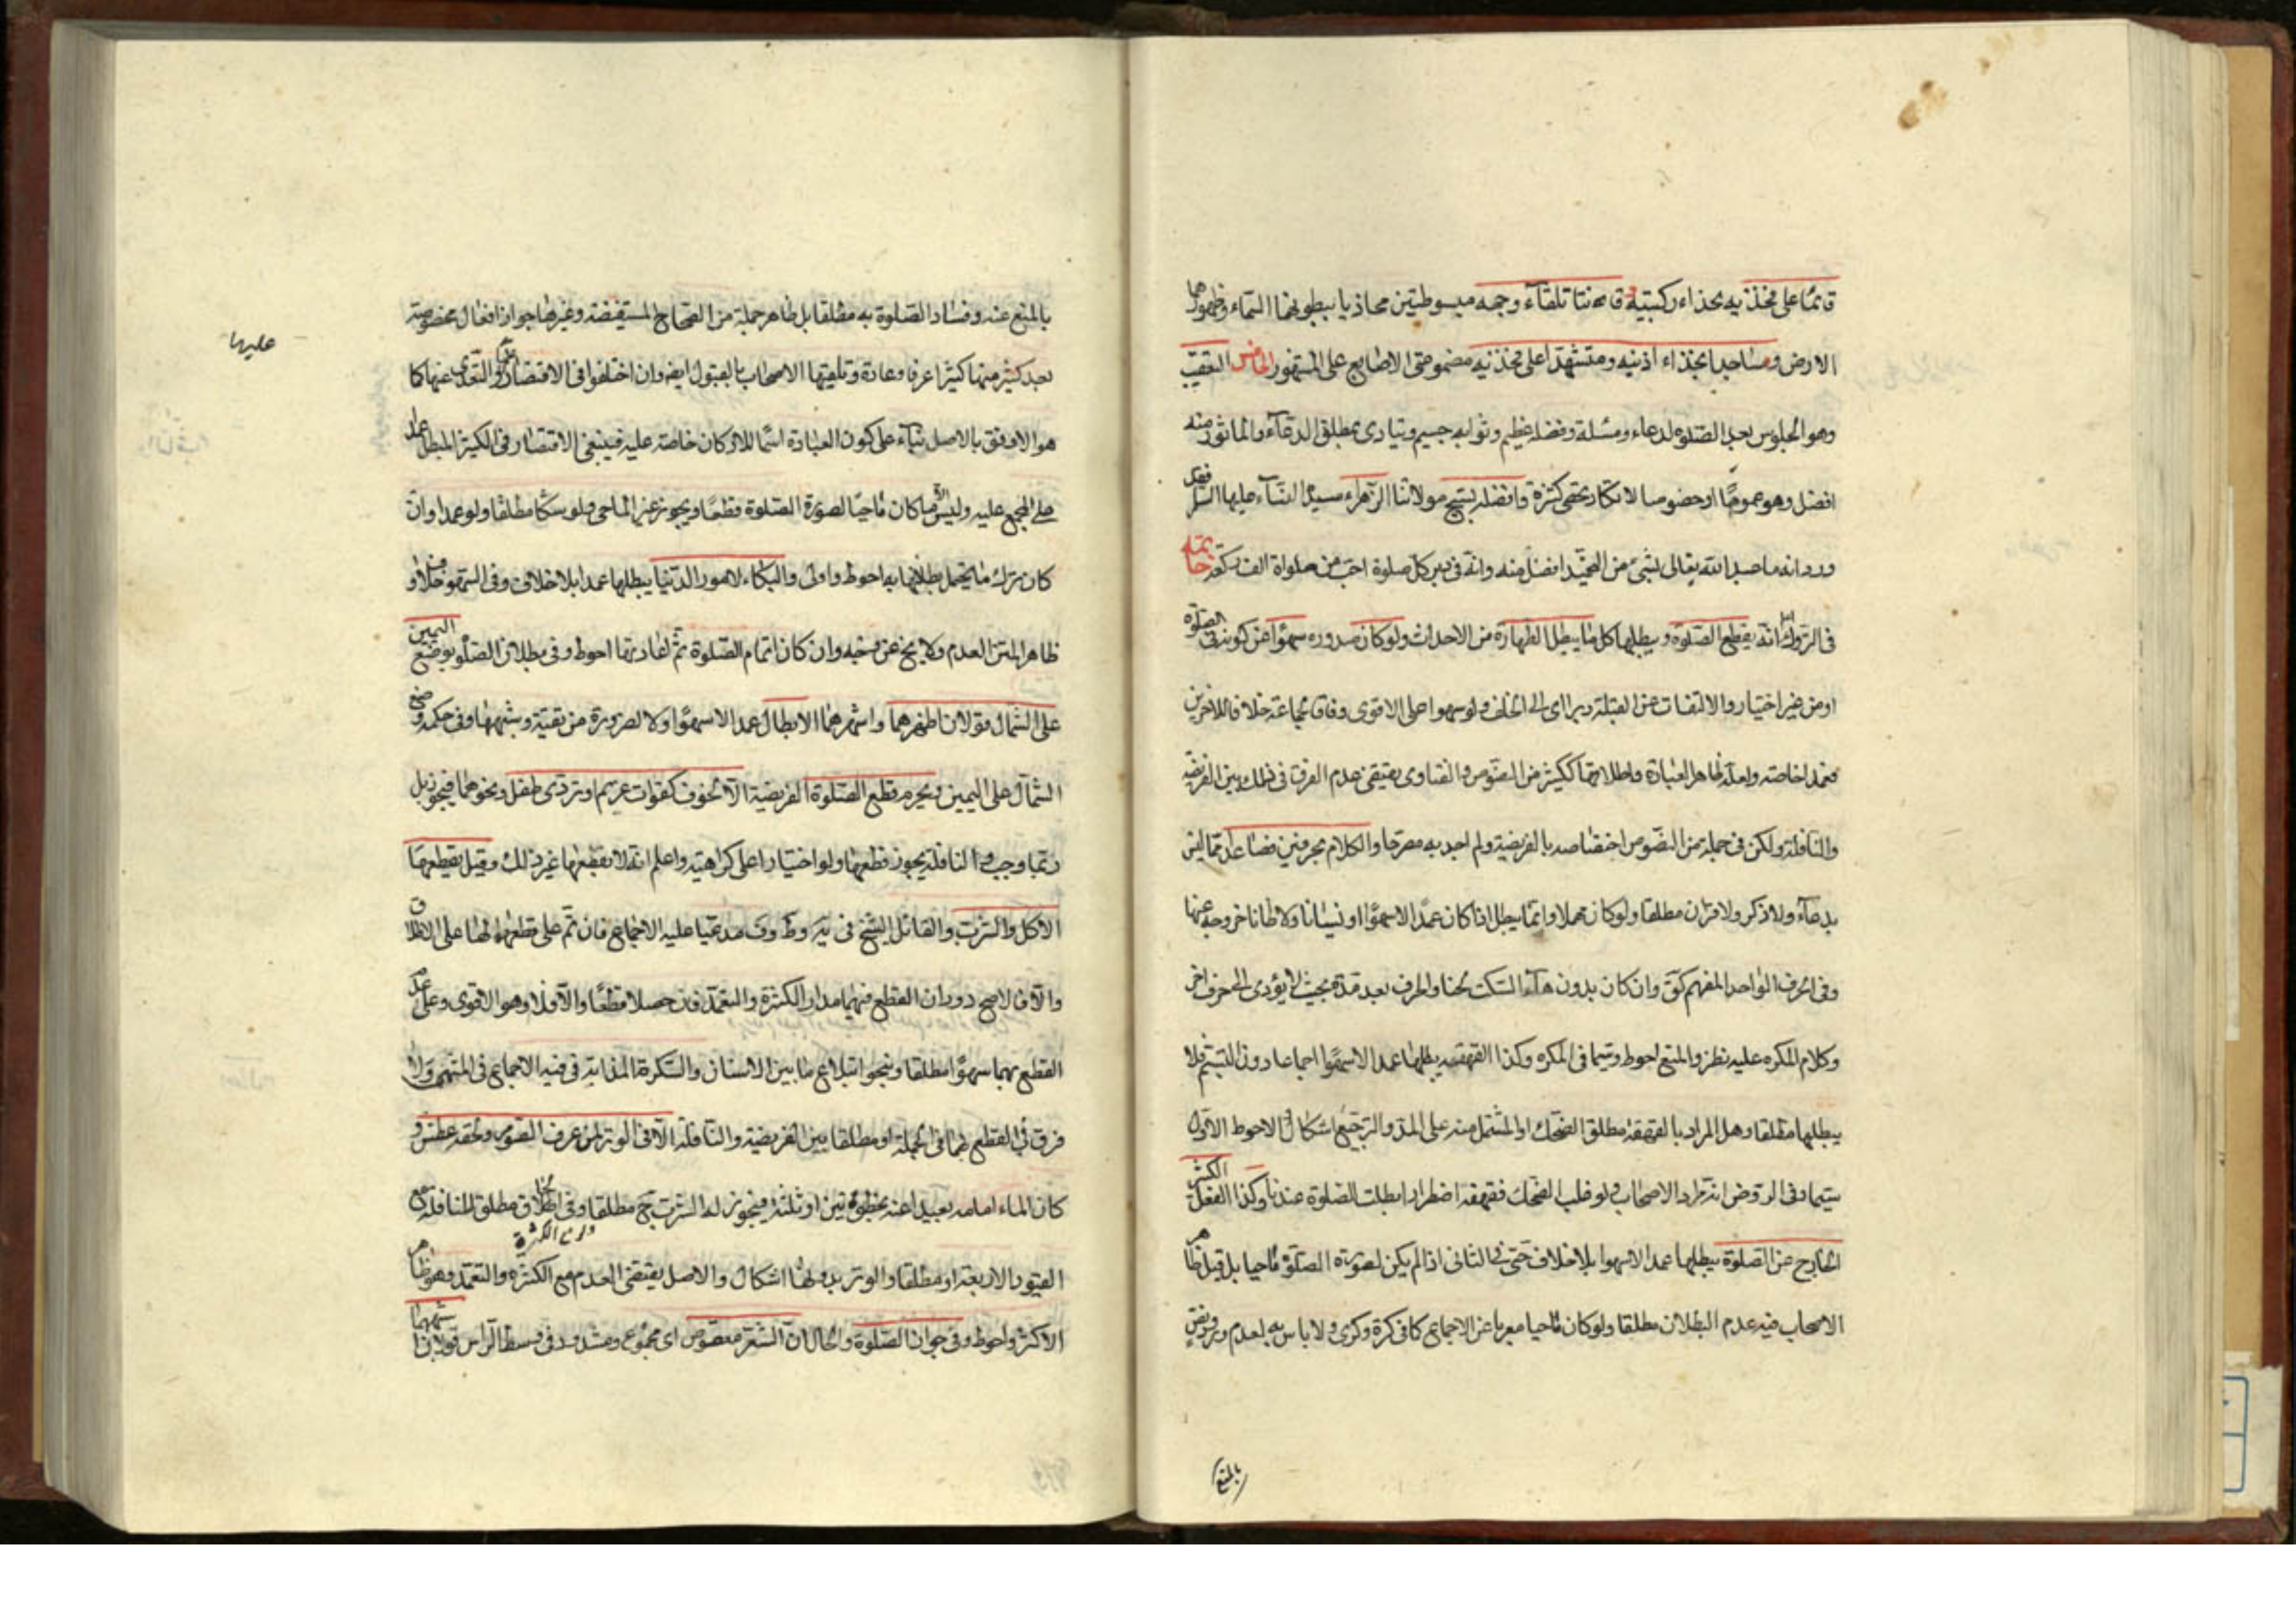 قائما على فخذيه بحذاء ركبتيه و قانتا تلقاء وجهه مبسوطتين محاذيا ببطونهما السماء وظهورهما
الارض وساجدا بحذاء اذنيه ومتشهدا على فخذيه مضمومتى الاصابع على المشهور الخامس التعقيب
وهو الجلوس بعد الصلوة لدعاء ومسئلة وفضله عظيم وثوابه جسيم ويتادى بمطلق الدعاء والماثور منه
افضل وهو عموما او خصوصا لا تكاد تحصى كثرة وافضله تسبيح مولاتنا الزهراء سيدة النساء عليها السلم فقد
ورد انه ما عبد الله تعالى بشئ من التحميد افضل منه وانه فى دبر كل صلوة احب من صلواة الف ركعة خاتمة
فى التروك انه يقطع الصلوة ويبطلها كل ما يبطل الطهارة من الاحداث ولو كان صدوره سهوا عن كونه فى الصلوة
او من غير اختيار والالتفات عن القبلة دبرا اى الى الخلف ولو سهوا على الاقوى وفاقا لجماعة خلافا للاخرين
فعمدا خاصة ولعله ظاهر العبارة واطلاقها ككثير من النصوص والفتاوى يقتضى عدم الفرق فى ذلك بين الفريضة
والنافلة ولكن فى جملة من النصوص اختصاصه بالفريضة ولم اجد به مصرحا والكلام بحرفين فصاعدا مما ليس
بدعاء ولا ذكر ولا قران مطلقا ولو كان مهملا وانما يبطل اذا كان عمدا لا سهوا او نسيانا ولا ظانا خروجه عنها
وفى الحرف الواحد المفهم كق وان كان بدون هاء السكت لحنا والحرف بعد مدة بحيث لا يؤدى الى حرف اخر
وكلام المكره عليه نظر والمنع احوط وسيما فى المكره وكذا القهقهه يبطلها عمدا لا سهوا اجماعا دون التبسم فلا
يبطلها مطلقا وهل المراد بالقهقهة مطلق الضحك او المشتمل منه على المد والترجيع اشكال والاحوط الاول
سيما وفى الروض انه مراد الاصحاب ولو غلب الضحك فقهقه اضطرارا بطلت الصلوة عندنا وكذا الفعل الكثير
الخارج عن الصلوة يبطلها عمدا لا سهوا بلا خلاف حتى فى الثانى اذا لم يكن لصورة الصلوة ماحيا بل قيل ظاهر
الاصحاب فيه عدم البطلان مطلقا ولو كان ماحيا معربا عن الاجماع كما فى كرة وكرى ولا باس به لعدم
بالمنع
بالمنع عنه وفساد الصلوة به مطلقا بل ظاهر جملة من الصحاح المستفيضة وغيرها جواز افعال مخصوصة
يعد كثير منها كثيرا عرفا وعادة وتلقيها الاصحاب بالقبول ايضا وان اختلفوا فى الاقتصار عليها او التعدى عنها كما
عليها
هو الاوفق بالاصل بناء على كون العبادة اسما للاركان خاصة عليه فينبغى الاقتصار فى الكثير المبطل عمدا
على المجمع عليه وليس الا ما كان ماحيا لصورة الصلوة قطعا ويجوز غير الماحى ولو شكا مطلقا ولو عمدا وان
كان ترك ما يحتمل بطلانها به احوط واولى والبكاء لامور الدنيا يبطلها عمدا بلا خلاف وفى السهو خلاف و
ظاهر المتن العدم ولا يخ عن وجه وان كان اتمام الصلوة ثم اعادتها احوط وفى بطلان الصلو بوضع اليمين
على الشمال قولان اظهرهما واشهرهما الابطال عمدا لا سهوا ولا لضرورة من تقية وشبهها وفى حكمه وضع
الشمال على اليمين ويحرم قطع الصلوة الفريضة الا لخوف كفوات غريم او تردى طفل ونحوهما فيجوز بل
ربما وجب و النافلة يجوز قطعها ولو اختيارا على كراهية واعلم انه لا يقطعها غير ذلك وقيل يقطعها
الاكل والشرب والقائل الشيخ فى ئر وط وف مدعيا عليه الاجماع فان تم على قطعهما لها على الاطلاق
والا فالاصح دوران القطع فيهما مدار الكثرة والتعمد فان حصلا قطعا والا فلا وهو الاقوى وعلى عدم
القطع بهما سهوا مطلقا وبنحو ابتلاع ما بين الاسنان والسكرة المذابة فى فيه الاجماع فى المنتهى ولا
فرق فى القطع بهما فى الجملة او مطلقا بين الفريضة والنافلة الا فى الوتر لمن عرف الصوم ولحقه عطش و
كان الماء امامه بعيدا عنه بخطوتين او ثلثة فيجوز له الشرب ح مطلقا وفى الحاق مطلق النافلة
القيود الاربعة او مطلقا والوتر بدونها اشكال والاصل يقتضى العدم مع الكثرة والتعمد وهو ظاهر
الاكثر واحوط وفى جواز الصلوة والحال ان الشعر معقوص اى مجموع ومشدود فى وسط الراس قولان اشبههما